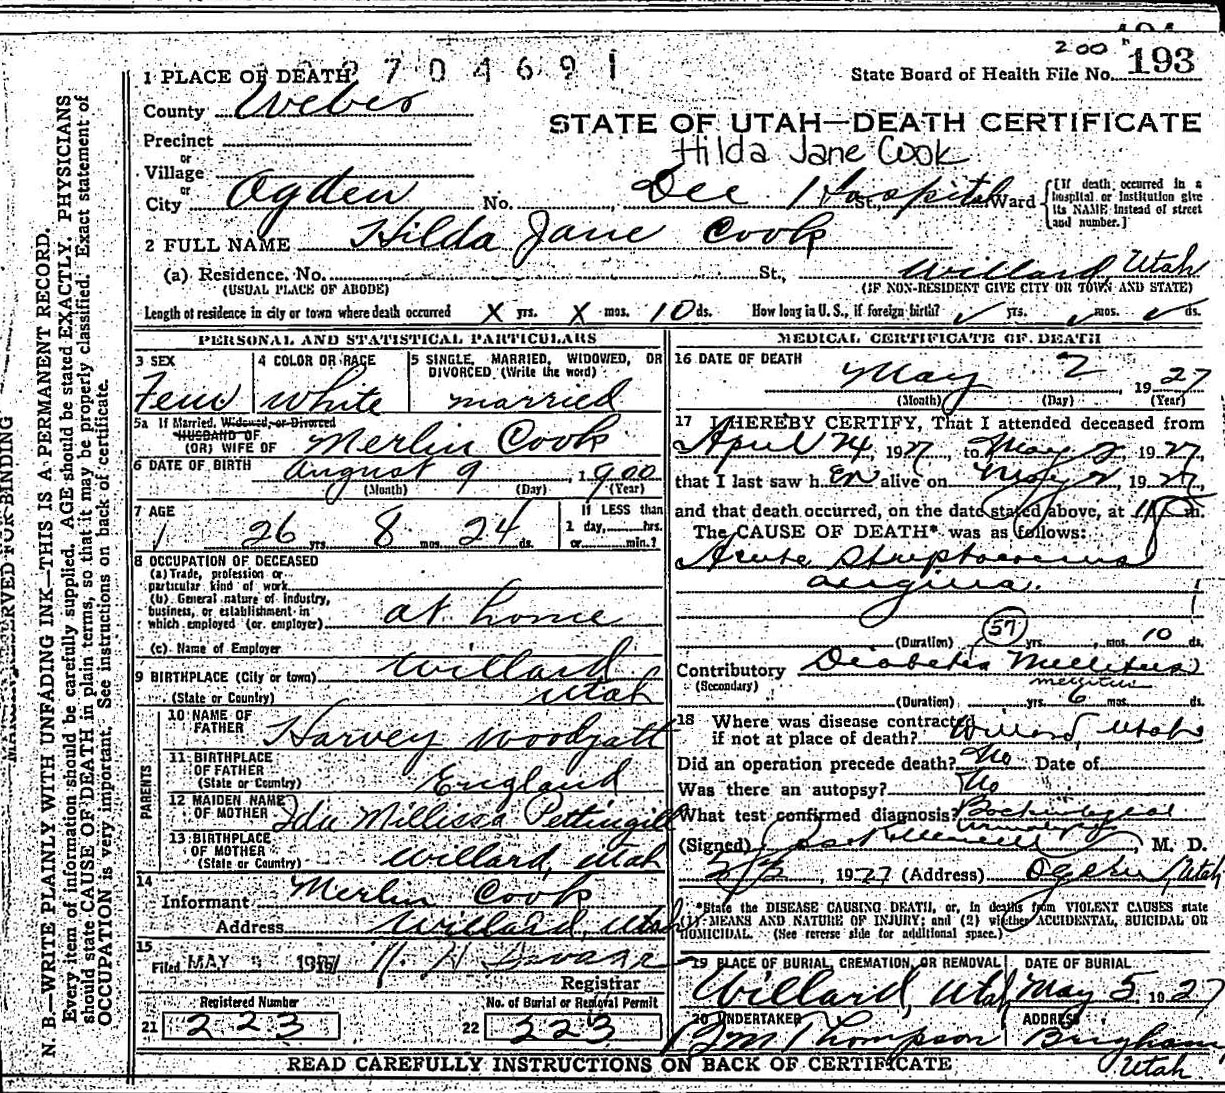 2704691
200
193
1 PLACE OF DEATH
State Board of Health File No.
County Weber
STATE OF UTAH—DEATH CERTIFICATE
Precinct
Hilda Jane Cook
or
Village
or
City Ogden No. Dee Hospital St., Ward
[If death occurred in a
hospital or institution give
its NAME instead of street
and number.]
2 FULL NAME Hilda Jane Cook
(a) Residence. No. St., Willard, Utah
(USUAL PLACE OF ABODE) (IF NON-RESIDENT GIVE CITY OR TOWN AND STATE)
Length of residence in city or town where death occurred X yrs. X mos. 10 ds. How long in U. S., if foreign birth? ✓ yrs. ✓ mos. ✓ ds.
PERSONAL AND STATISTICAL PARTICULARS
3 SEX
Fem
4 COLOR OR RACE
White
5 SINGLE, MARRIED, WIDOWED, OR
DIVORCED (Write the word)
married
5a If Married, Widowed, or Divorced
HUSBAND OF
(OR) WIFE OF Merlin Cook
6 DATE OF BIRTH August 9, 1900
(Month) (Day) (Year)
7 AGE
26 yrs. 8 mos. 24 ds.
If LESS than
1 day, hrs.
or min.?
8 OCCUPATION OF DECEASED
(a) Trade, profession or
particular kind of work
(b) General nature of industry,
business, or establishment in
which employed (or employer) at home
(c) Name of Employer
9 BIRTHPLACE (City or town) Willard
(State or Country) Utah
PARENTS
10 NAME OF
FATHER Harvey Woodyatt
11 BIRTHPLACE
OF FATHER
(State or Country) England
12 MAIDEN NAME
OF MOTHER Ida Millissa Pettingill
13 BIRTHPLACE
OF MOTHER
(State or Country) Willard, Utah
14
Informant Merlin Cook
Address Willard, Utah
15
Filed MAY 1927
Registrar
Registered Number
21 223
No. of Burial or Removal Permit
22 223
MEDICAL CERTIFICATE OF DEATH
16 DATE OF DEATH
May 2 1927
(Month) (Day) (Year)
17 I HEREBY CERTIFY, That I attended deceased from
April 24, 1927, to May 2, 1927,
that I last saw h er alive on May 2, 1927,
and that death occurred, on the date stated above, at m.
The CAUSE OF DEATH* was as follows:
Acute Streptococcus
angina.
(Duration) 57 yrs. mos. 10 ds.
Contributory Diabetes Mellitus
(Secondary) mellitus
(Duration) yrs. 6 mos. ds.
18 Where was disease contracted
if not at place of death? Willard, Utah
Did an operation precede death? No Date of
Was there an autopsy? No
What test confirmed diagnosis?
(Signed) , M. D.
, 1927 (Address) Ogden, Utah
*State the DISEASE CAUSING DEATH, or, in deaths from VIOLENT CAUSES state
(1) MEANS AND NATURE OF INJURY; and (2) whether ACCIDENTAL, SUICIDAL OR
HOMICIDAL. (See reverse side for additional space.)
19 PLACE OF BURIAL, CREMATION, OR REMOVAL
Willard, Utah
DATE OF BURIAL
May 5 1927
20 UNDERTAKER
Thompson
ADDRESS
Brigham,
Utah
READ CAREFULLY INSTRUCTIONS ON BACK OF CERTIFICATE
MARGIN RESERVED FOR BINDING
N. B.—WRITE PLAINLY WITH UNFADING INK—THIS IS A PERMANENT RECORD.
Every item of information should be carefully supplied. AGE should be stated EXACTLY. PHYSICIANS
should state CAUSE OF DEATH in plain terms, so that it may be properly classified. Exact statement of
OCCUPATION is very important. See instructions on back of certificate.